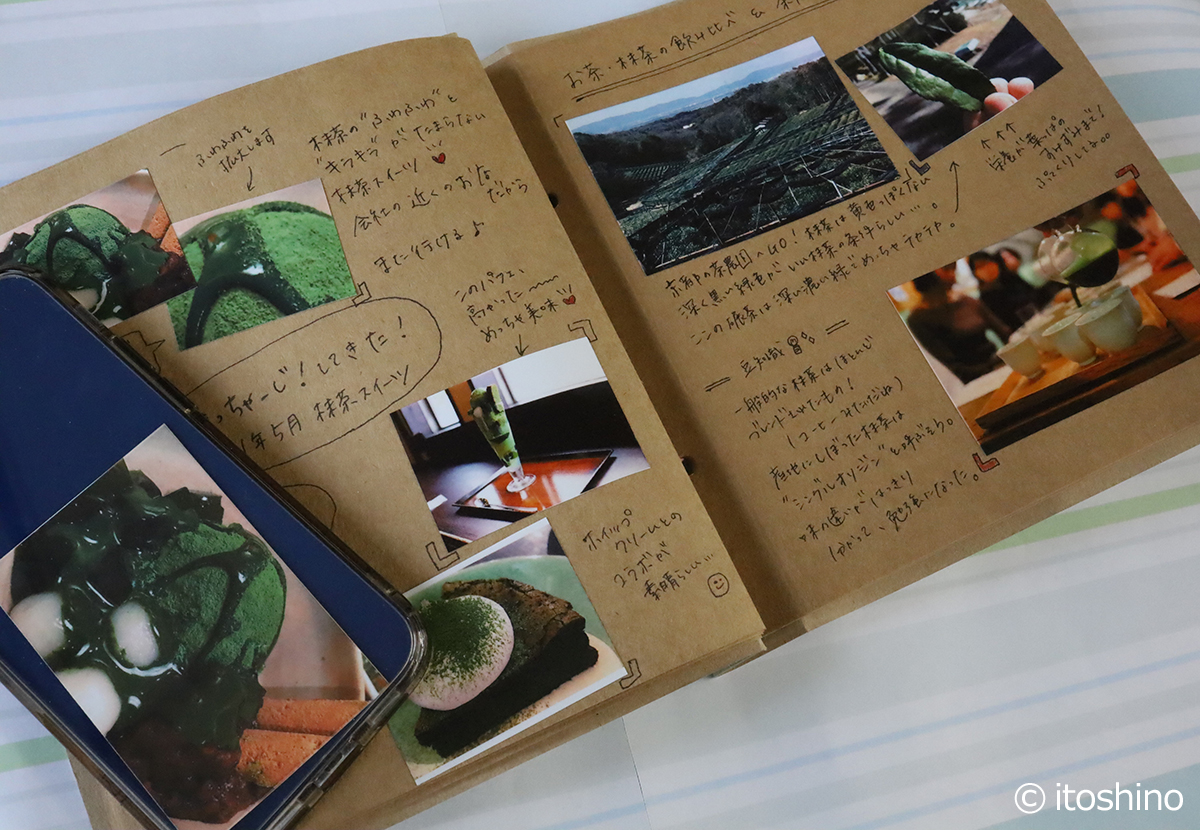 ふわふわを
拡大します
抹茶の"ふわふわ"と
"キラキラ"がたまらない
抹茶スイーツ
会社の近くのお店だから
また行ける♪
このパフェ、
高かった〜〜
めっちゃ美味
っちゃーじ!してきた!
年5月 抹茶スイーツ
ホイップ
クリームとの
コラボが
素晴らしい…
お茶・抹茶の飲み比べ &
↑↑↑
栄養が葉っぱの
すみずみまで!
ぷっくりしてる。
京都の茶農園へGO!抹茶は黄色っぽくない
深く濃い緑色がいい抹茶の条件らしい…。
ここの碾茶は深い濃い緑でめっちゃツヤツヤ。
豆知識
一般的な抹茶はほとんど
ブレンドされたもの!
(コーヒーみたいだね)
産地にしぼった抹茶は
"シングルオリジン"と呼ぶそう。
味の違いがはっきり
分かって、勉強になった。
© itoshino